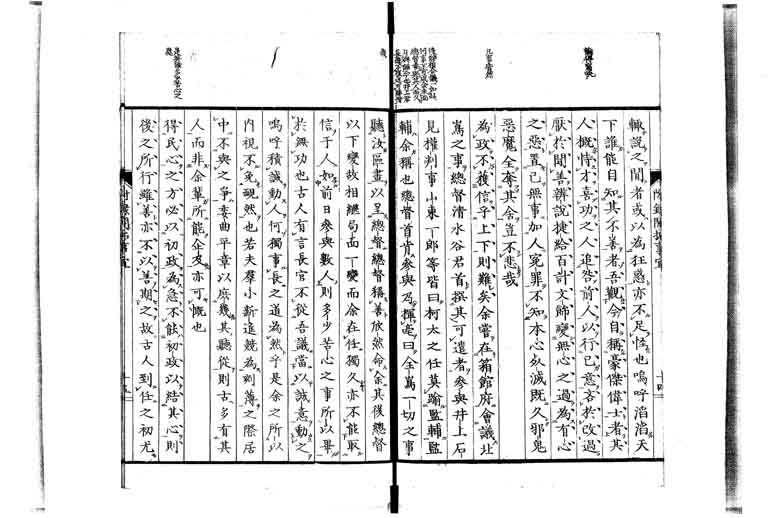 輙說之聞者或以為狂惑亦不足怪也嗚呼滔滔天
下誰能自知其不善者吾觀今自稱豪傑偉士者其
人概恃才喜功之人追咎前人以行己意吝於改過
厭於聞善辨說捷給百計文飾變無心之過為有心
之惡置己無事加人冤罪不知本心必滅既久邪鬼
惡魔全奪其余豈不悲哉
為政不獲信乎上下則難矣余嘗在箱館府會議
嶌之事總督清水谷君首撰其可遣者參與井上石
見權判事小東一郎等皆曰柯太之任莫踰監輔監
輔余稱也總督首肯參與乃揮毫曰全嶌一切之事
聽汝區畫以呈總督總督稱善欣然命余其後總督
以下變故相繼局面一變而余在任獨久亦不能取
信于人如前日參與數人則多少苦心之事所以畢
於無功也古人有言長官不從吾議當以誠意動之
嗚呼積誠動人何獨事長之道為然乎是余之所以
內視不免靦然也若夫羣小新進競為刻薄之際居
中不與之爭委曲平章以庶幾其聽從則古多有其
人而非余輩所能企及亦可慨也
得民心之方必以初政為急不能初政以結其心則
後之所行雖善亦不以善期之故古人到任之初尤